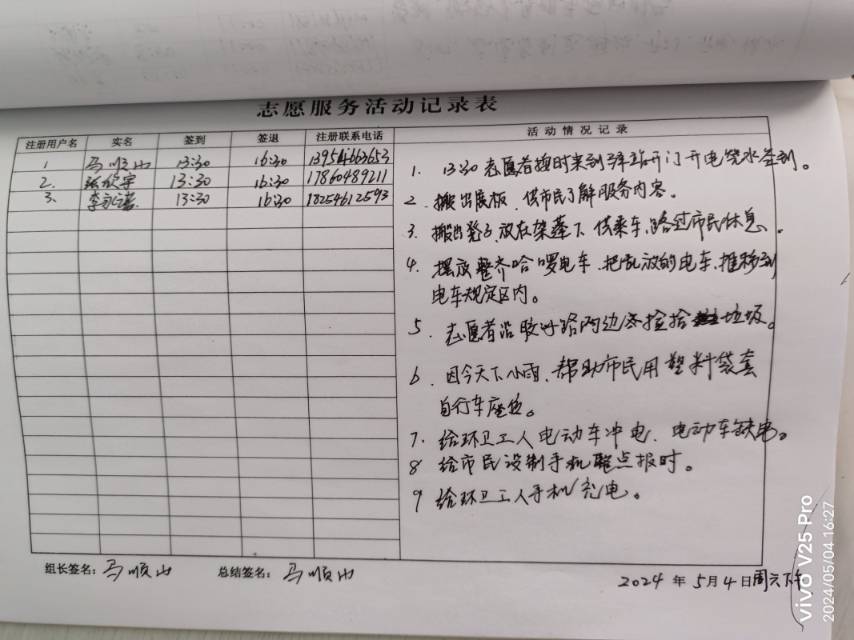 志愿服务活动记录表
注册用户名 实名 签到 签退 注册联系电话 活动情况记录
1 马顺山 13:30 16:30 13954663653
2. 张欣宇 13:30 16:30 17860489211
3. 李永 13:30 16:30 18254612593
1. 13:30志愿者按时来到驿站开门开电烧水签到。
2 搬出展板、供市民了解服务内容。
3. 搬出凳子放在架蓬下供乘车、路过市民休息。
4. 摆放整齐哈啰电车、把乱放的电车、推移到
电车规定区内。
5. 志愿者沿路两边捡拾垃圾。
6. 因今天下小雨、帮助市民用塑料袋套
自行车座位。
7. 给环卫工人电动车冲电、电动车缺电。
8 给市民设制手机整点报时。
9 给环卫工人手机充电。
组长签名：马顺山 总结签名：马顺山 2024年5月4日周六下午
vivo V25 Pro
2024/05/04 16:27